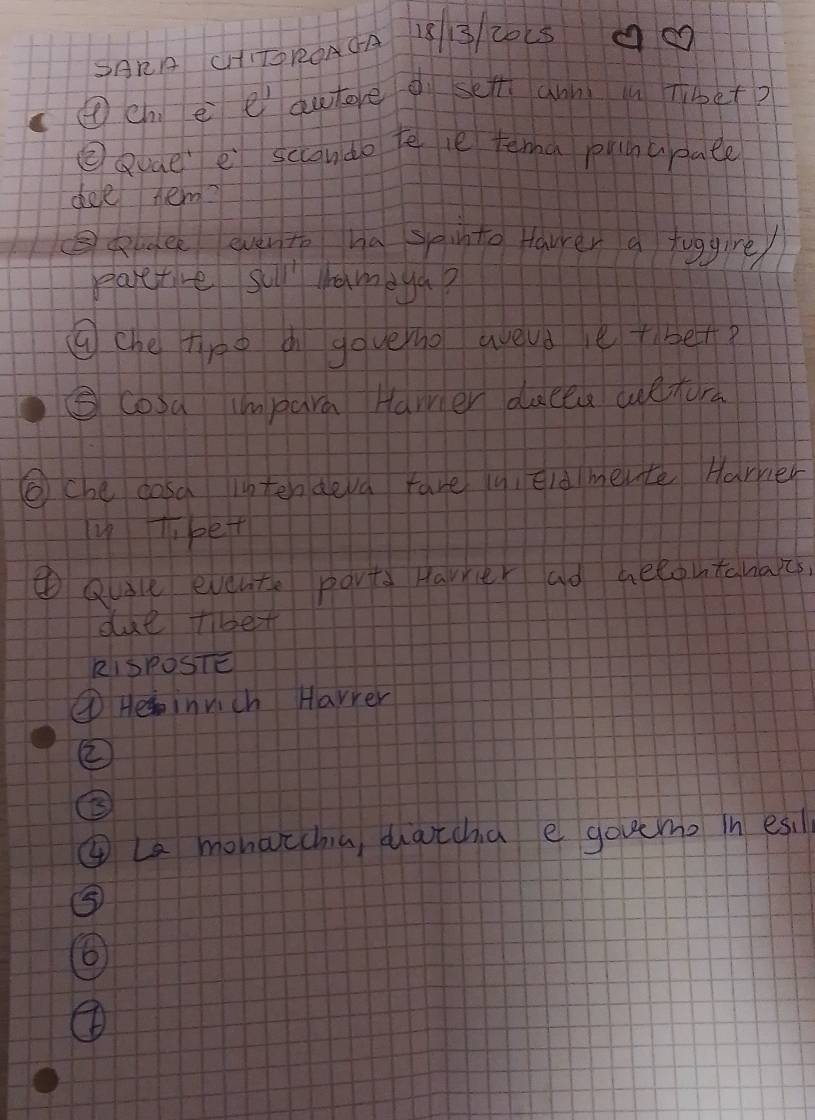 SARA CHITOROAGA 18/3/2025
① Chi è l'autore di sett. anni in Tibet?
② Qual' è secondo te il tema principale
del
③ Quale evento ha spinto Harrer a fuggire/
partire sull'
④ Che tipo di governo aveva il tibet?
⑤ Cosa impara Harrer dalla cultura
⑥ Che cosa intendeva fare inizialmente Harrer
in Tibet
⑦ Quale evento porta Harrer ad allontanarsi
dal tibet
RISPOSTE
① Heinrich Harrer
②
③
④ La monarchia, diarchia e governo in esili
⑤
⑥
⑦